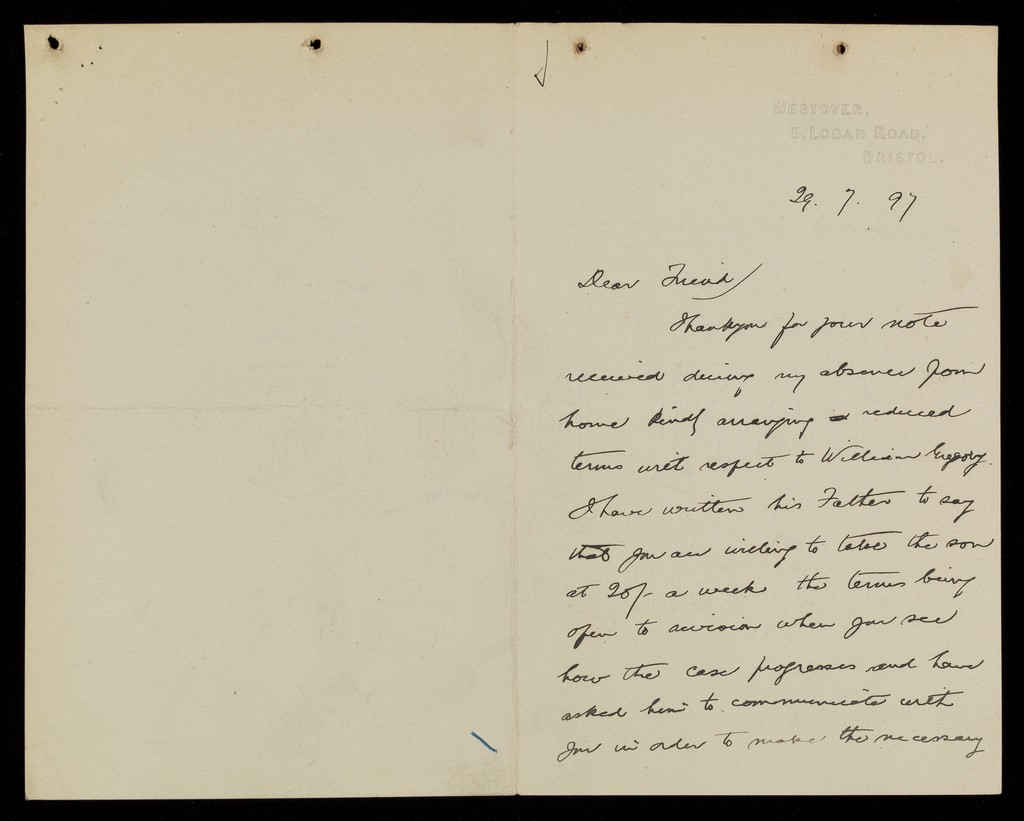 WESTOVER,
5, LOGAN ROAD,
BRISTOL.
29. 7. 97
Dear Friend
Thankyou for your note
received during my absence from
home kindly arranging reduced
terms with respect to William Gregory.
I have written his Father to say
that you are willing to take the son
at 20/- a week the terms being
open to revision when you see
how the case progresses and have
asked him to communicate with
you in order to make the necessary